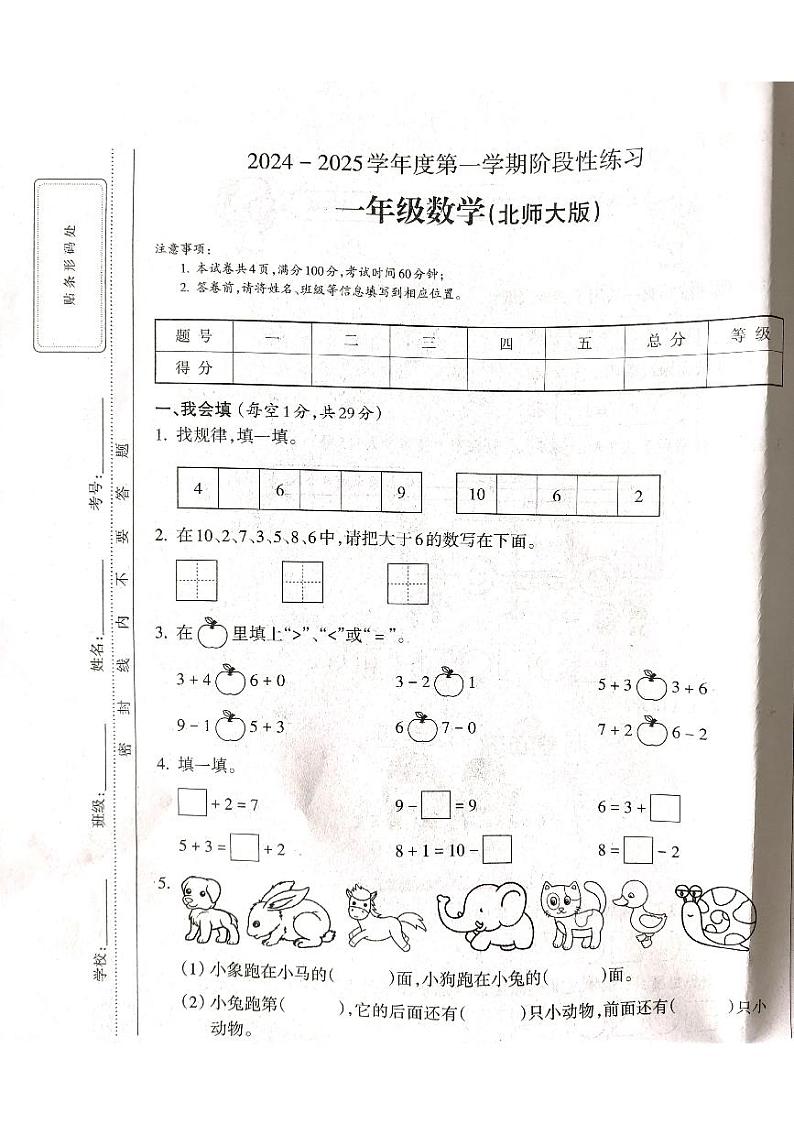 2024-2025学年度第一学期阶段性练习
一年级数学(北师大版)
注意事项:
1. 本试卷共4页,满分100分,考试时间60分钟;
2. 答卷前,请将姓名、班级等信息填写到相应位置。
题 号 一 二 三 四 五 总 分 等 级
得 分
一、我会填(每空1分,共29分)
1. 找规律,填一填。
4 6 9 10 6 2
2. 在10、2、7、3、5、8、6中,请把大于6的数写在下面。
3. 在 里填上“>”、“<”或“=”。
3+4 6+0 3-2 1 5+3 3+6
9-1 5+3 6 7-0 7+2 6-2
4. 填一填。
□+2=7 9-□=9 6=3+□
5+3=□+2 8+1=10-□ 8=□-2
5.
(1) 小象跑在小马的( )面,小狗跑在小兔的( )面。
(2) 小兔跑第( ),它的后面还有( )只小动物,前面还有( )只小
动物。
贴条形码处
学校: 班级: 姓名: 考号:
密 封 线 内 不 要 答 题